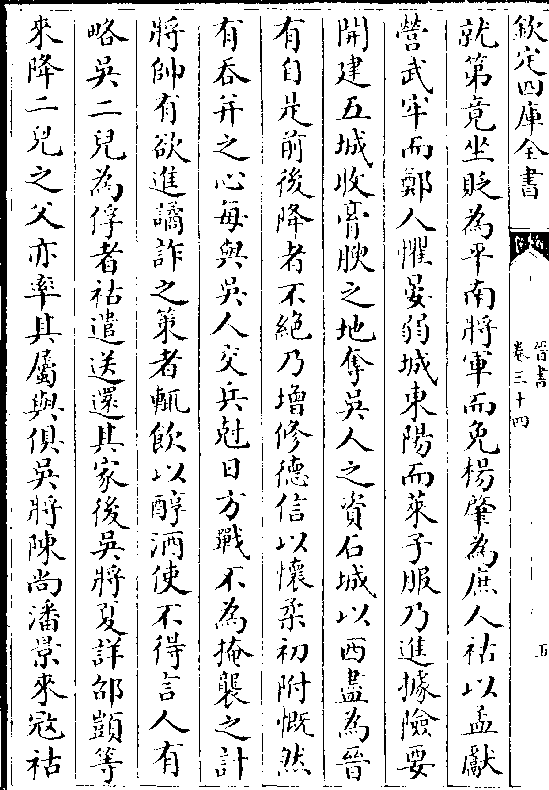 欽定四庫全書
晉書
卷三十四
五
就第竟坐貶為平南將軍而免楊肇為庶人祜以孟獻
營武牢而鄭人懼晏弱城東陽而萊子服乃進據險要
開建五城收膏腴之地奪吳人之資石城以西盡為晉
有自是前後降者不絶乃增修德信以懷柔初附慨然
有吞并之心每與吳人交兵尅日方戰不為掩襲之計
將帥有欲進譎詐之策者輒飲以醇酒使不得言人有
略吳二兒為俘者祜遣送還其家後吳將夏詳邵顗等
來降二兒之父亦率其屬與俱吳將陳尚潘景來寇祜